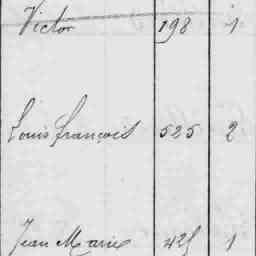 Victor 198 1
Louis françois 525 2
Jean Marie 425 1